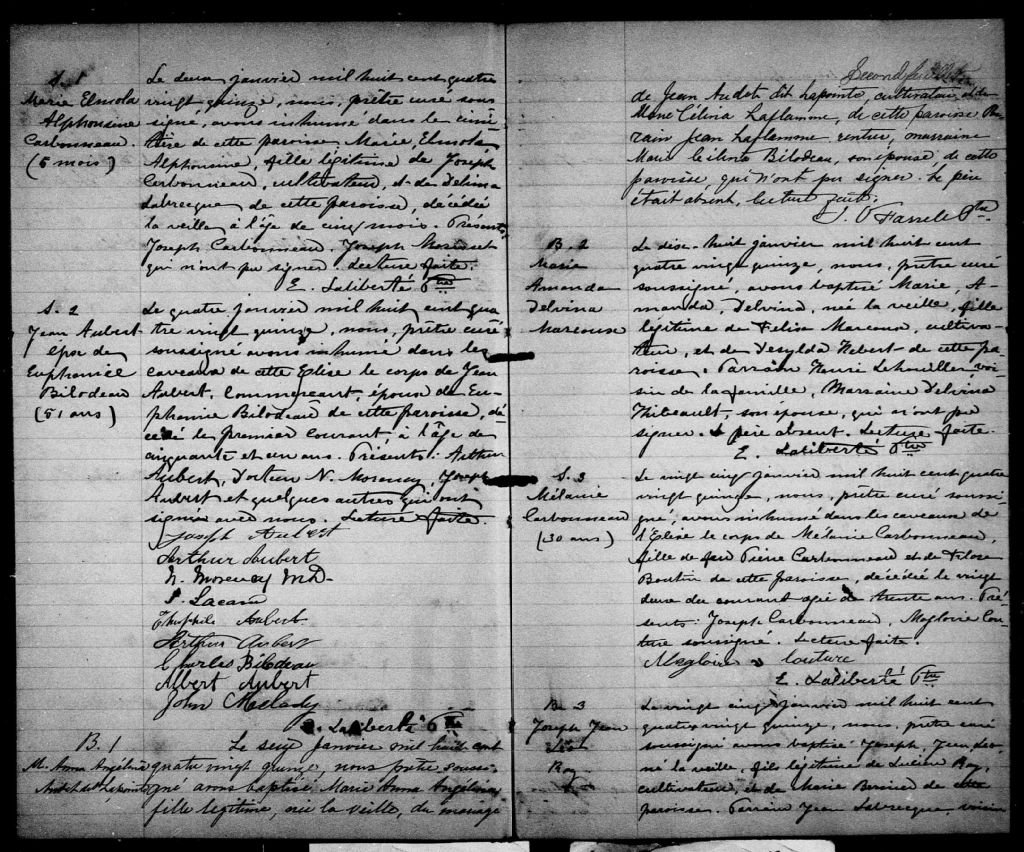 S. 1
Marie Elmola
Alphonsine
Carbonneau
(5 mois)
Le deux janvier mil huit cent quatre
vingt quinze, nous, prêtre curé sous
signé, avons inhumé dans le cime
tière de cette paroisse Marie, Elmola
Alphonsine, fille légitime de Joseph
Carbonneau, cultivateur, et de Delima
Labrecque de cette paroisse, décédée
la veille à l'âge de cinq mois. Présents
Joseph Carbonneau. Joseph
qui n'ont pu signer. Lecture faite.
E. Laliberté Ptre
S. 2
Jean Aubert
époux de
Euphemie
Bilodeau
(51 ans)
Le quatre janvier mil huit cent qua
tre vingt quinze, nous, prêtre curé
soussigné avons inhumé dans les
caveaux de cette Eglise le corps de Jean
Aubert, Commerçant, époux de Eu-
phemie Bilodeau de cette paroisse, dé-
cédé le premier courant, à l'âge de
cinquante et un ans. Présents: Arthur
Aubert, Docteur N. Morency, Joseph
Aubert et quelques autres qui ont
signé avec nous. Lecture faite.
Joseph Aubert
Arthur Aubert
N. Morency M.D.
Théophile Aubert
Arthur Aubert
Charles Bilodeau
Albert Aubert
John Melady
E. Laliberté Ptre
B. 1
M. Anna Angélina
Audet dit Lapointe
Le seize Janvier mil huit cent
quatre vingt quinze, nous prêtre soussi-
gné avons baptisé Marie Anna Angélina
fille légitime, née la veille, du mariage
Second feuillet
de Jean Audet dit Lapointe, cultivateur et de
Marie Célina Laflamme, de cette paroisse Par
rain Jean Laflamme rentier, marraine
Marie Bilodeau, son épouse, de cette
paroisse, qui n'ont pu signer. Le père
était absent, lecture faite.
O'Farrell Ptre
B. 2
Marie
Amanda
Delvina
Marcoux
Le dix-huit janvier mil huit cent
quatre vingt quinze, nous, prêtre curé
soussigné, avons baptisé Marie, A-
manda, Delvina, née la veille, fille
légitime de Felix Marcoux, cultiva
teur, et de Hebert de cette pa-
roisse. Parrain Henri Lehouiller voi-
sin de la famille, Marraine Delvina
Thibeault, son épouse, qui n'ont pu
signer. Le père absent. Lecture faite.
E. Laliberté Ptre
S. 3
Mélanie
Carbonneau
(30 ans)
Le vingt cinq janvier mil huit cent quatre
vingt quinze, nous, prêtre curé soussi
gné, avons inhumé dans les caveaux de
l'Eglise le corps de Mélanie Carbonneau,
fille de feu Pierre Carbonneau et de
Boutin de cette paroisse, décédée le vingt
deux du courant agée de trente ans. Pré
sents: Joseph Carbonneau, Magloire Cou-
ture soussigné. Lecture faite.
Magloire Couture
E. Laliberté Ptre
B. 3
Joseph Jean
Léo
Roy
Le vingt cinq janvier mil huit cent
quatre vingt quinze, nous, prêtre curé
soussigné avons baptisé Joseph, Jean Leo
né la veille, fils légitime de Roy,
cultivateur, et de Marie de cette
paroisse. Parrain Jean Labrecque, voisin